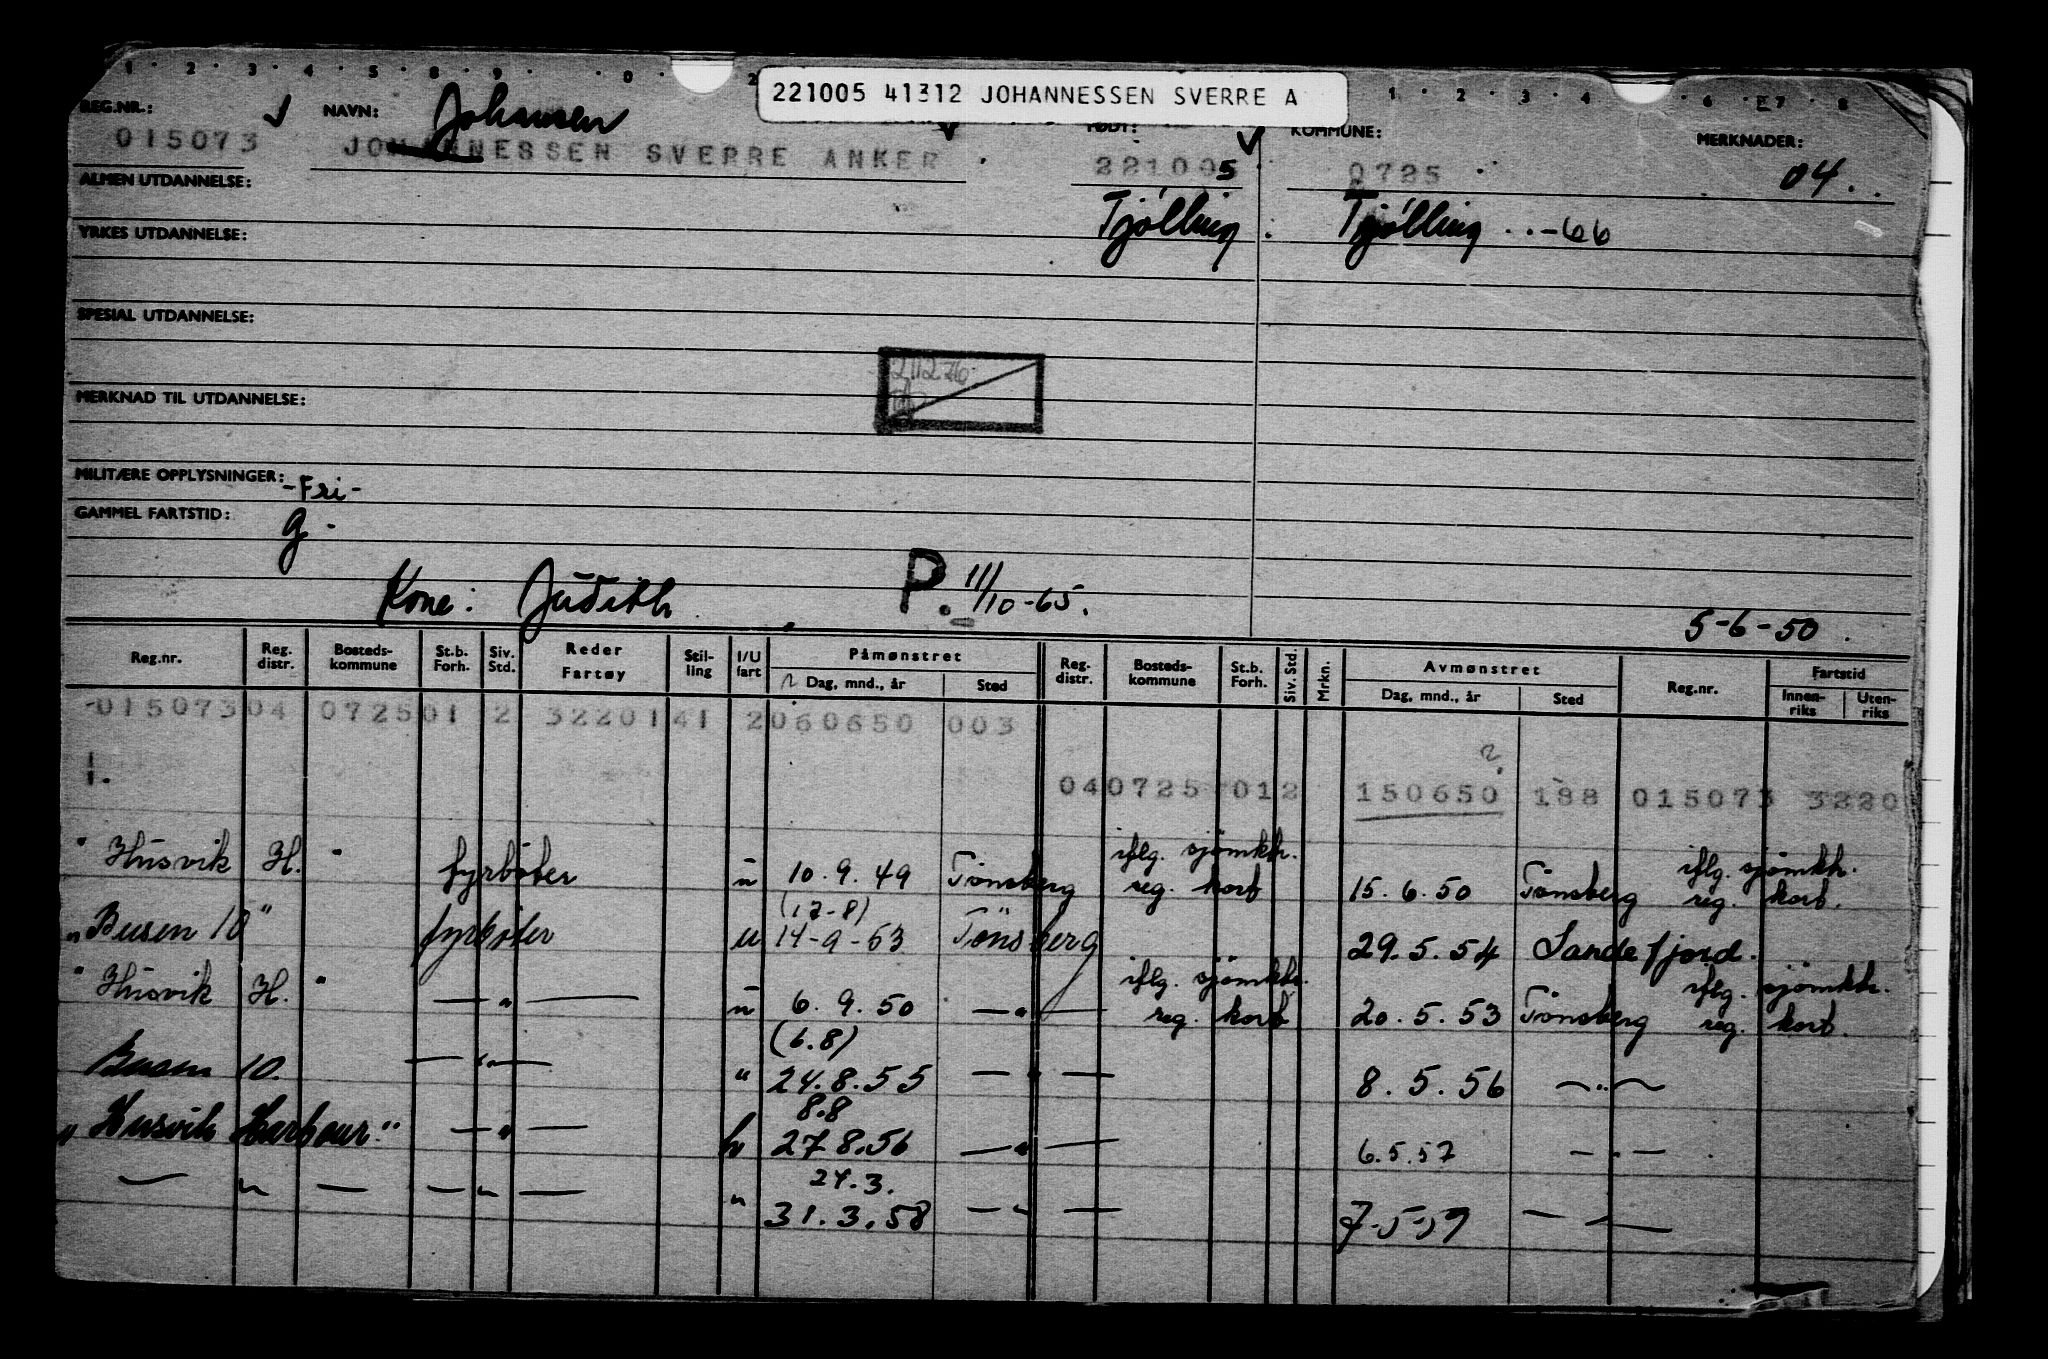 221005 41312 JOHANNESSEN SVERRE A
REG.NR.: NAVN: Johansen FØDT: KOMMUNE: MERKNADER:
015073 JOHANNESSEN SVERRE ANKER 221005 0725 04.
ALMEN UTDANNELSE:
Tjølling Tjølling -66
YRKES UTDANNELSE:
SPESIAL UTDANNELSE:
MERKNAD TIL UTDANNELSE:
MILITÆRE OPPLYSNINGER: -Fri-
GAMMEL FARTSTID: g.
Kone: Judith P. 11/10-65.
5-6-50.
Reg.nr. Reg. distr. Bosteds-kommune St.b. Forh. Siv. Std. Reder Fartøy Stil-ling I/U fart Påmønstret Dag, mnd., år Sted Reg. distr. Bosteds-kommune St.b. Forh. Siv. Std. Mrkn. Avmønstret Dag, mnd., år Sted Reg.nr. Fartstid Innen-riks Uten-riks
015073 04 0725 01 2 32201 41 2 060650 003
04 0725 01 2 150650 188 015073 3220
iflg. sjömkh. iflg. sjömkh.
" Husvik H. " fyrbøter u 10.9.49 Tönsberg reg. kort 15.6.50 Tönsberg reg. kort.
(17-8)
" Busen 10 " fyrbøter u 14-9-53 Tönsberg 29.5.54 Sandefjord.
iflg. sjömkh. iflg. sjömkh.
" Husvik H. " — " — u 6.9.50 — " — reg. kort 20.5.53 Tönsberg reg. kort.
(6.8)
Busen 10. — " — " 24.8.55 — " — 8.5.56 — " —
8.8
" Husvik Harbour " — " — u 27.8.56 — " — 6.5.57 — " —
24.3.
— " — — " — " 31.3.58 — " — 7-5-59 — " —